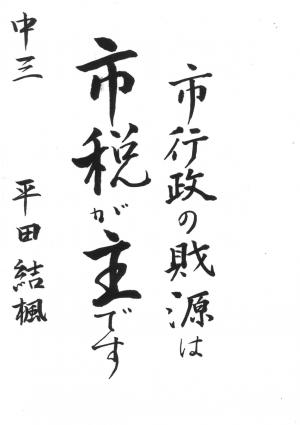 市行政の財源は
市税が主です
中三 平田結楓